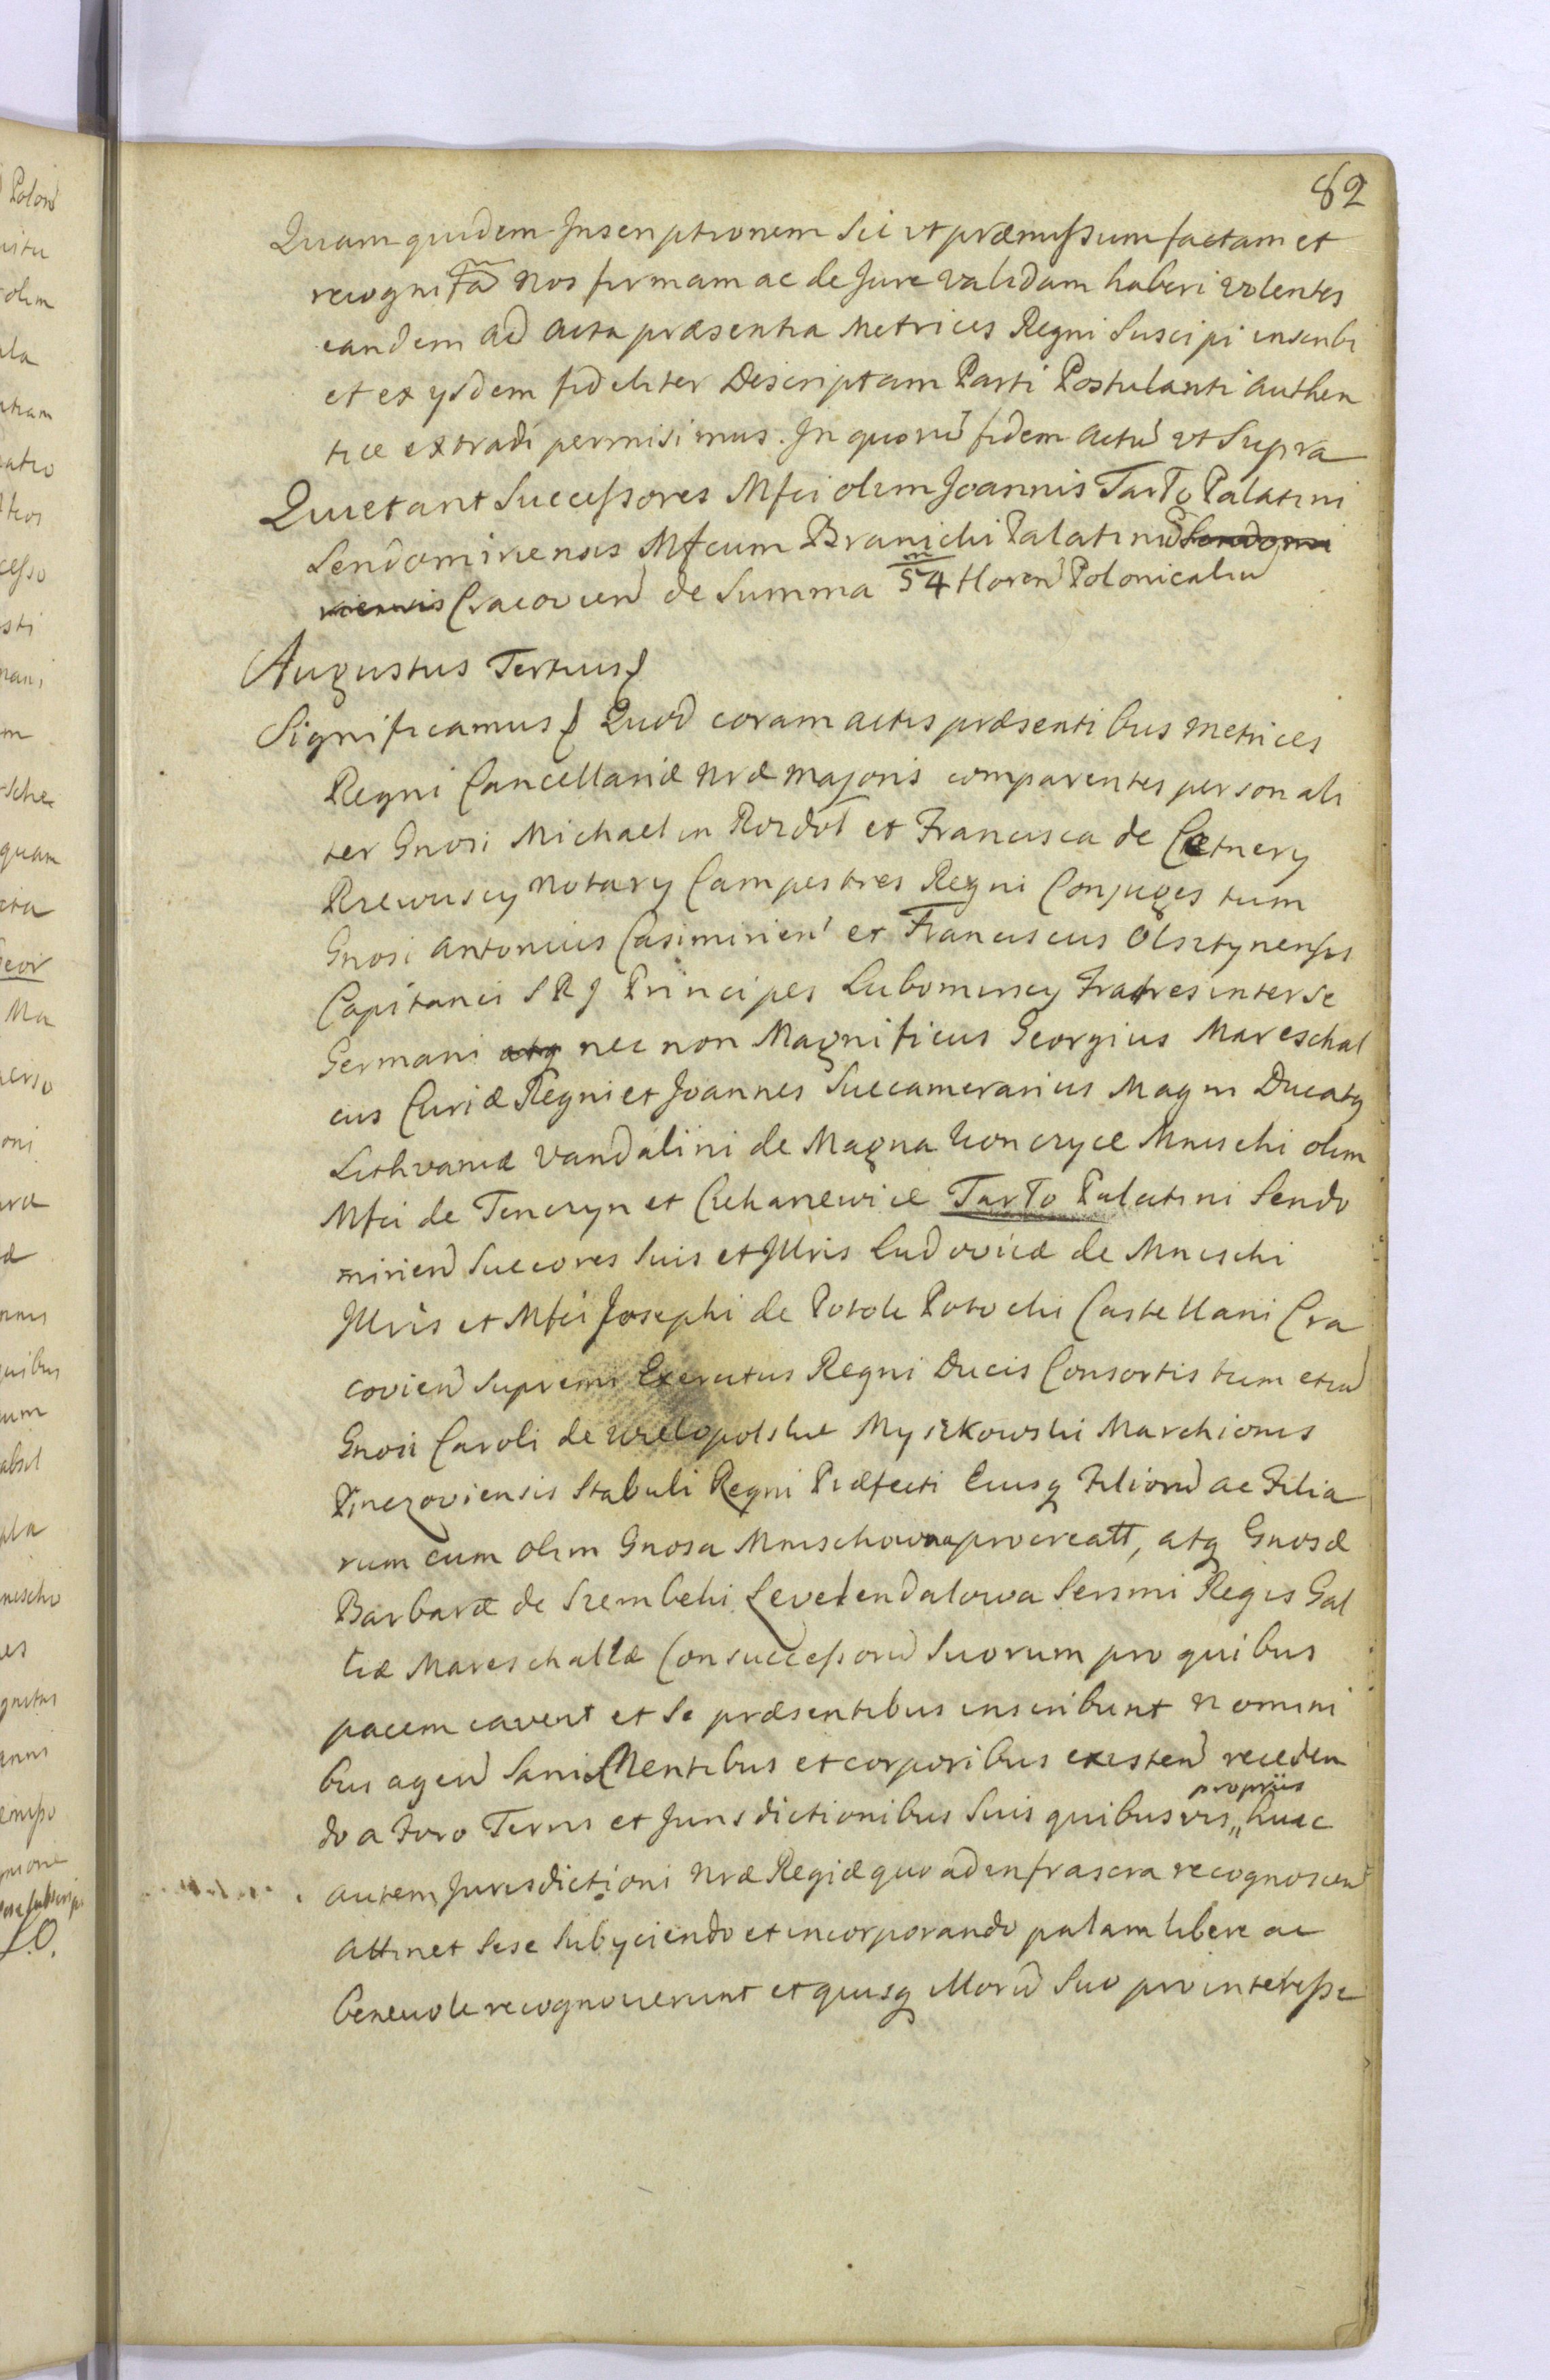 82
Quam quidem Inscriptionem Sic ut præmissum factam et
recognitã nos firmam ac de Jure validam haberi volentes
eandem ad acta præsentia Metrices Regni Suscipi inscribi
et ex ysdem fideliter Descriptam Parti Postulanti authen
tice extradi permisimus. In quorũ fidem Actũ ut Supra
Quietant Successores Mfci olim Joannis Tarło Palatini
Sendomiriensis Mfcum Branicki Palatinũ Sendomi
riensis Cracovien de Summa 54 m Floren Polonicaliũ
Augustus Tertius
Significamus Quod coram actis præsentibus Metrices
Regni Cancellariæ nræ majoris comparentes personali
ter Gnosi Michael in Rozdoł et Francisca de Cetnery
Rzewuscy Notary Campestres Regni Conjuges tum
Gnosi Antonius Casimirien et Franciscus Olsztynensis
Capitanei S R J Principes Lubomirscy Fratres inter se
Germani atq nec non Magnificus Georgius Mareschal
cus Curiæ Regni et Joannes Succamerarius Magni Ducatq
Lithvaniæ Vandalini de Magna Konczyce Mnischi olim
Mfci de Tenczyn et Czekarzewice Tarło Palatini Sendo
mirien Succores Suis et Jllris Ludovicæ de Mnischi
Jllris et Mfci Josephi de Potok Potocki Castellani Cra
covien Supremi Exercitus Regni Ducis Consortis tum etiã
Gnosi Caroli de Wielopolskie Myszkowski Marchionis
Pinczoviensis Stabuli Regni Præfecti Eiusq Filiorũ ac Filia
rum cum olim Gnosa Mnischowna procreatt, atq Gnosæ
Barbaræ de Szembeki Levelendalowa Sersmi Regis Gal
liæ Mareschallæ Consuccessorũ Suorum pro quibus
pacem cavent et Se præsentibus inscribunt nomini
bus agen Sani Mentibus et corporibus existen receden
do a Foro Terris et Jurisdictionibus Suis quibusvis „ propriis huic
autem Jurisdictioni nræ Regiæ quo ad infrascra recognoscen
attinet Sese Subyciendo et incorporando palam libere ac
benevole recognoverunt et quisq illorũ Suo pro interesse